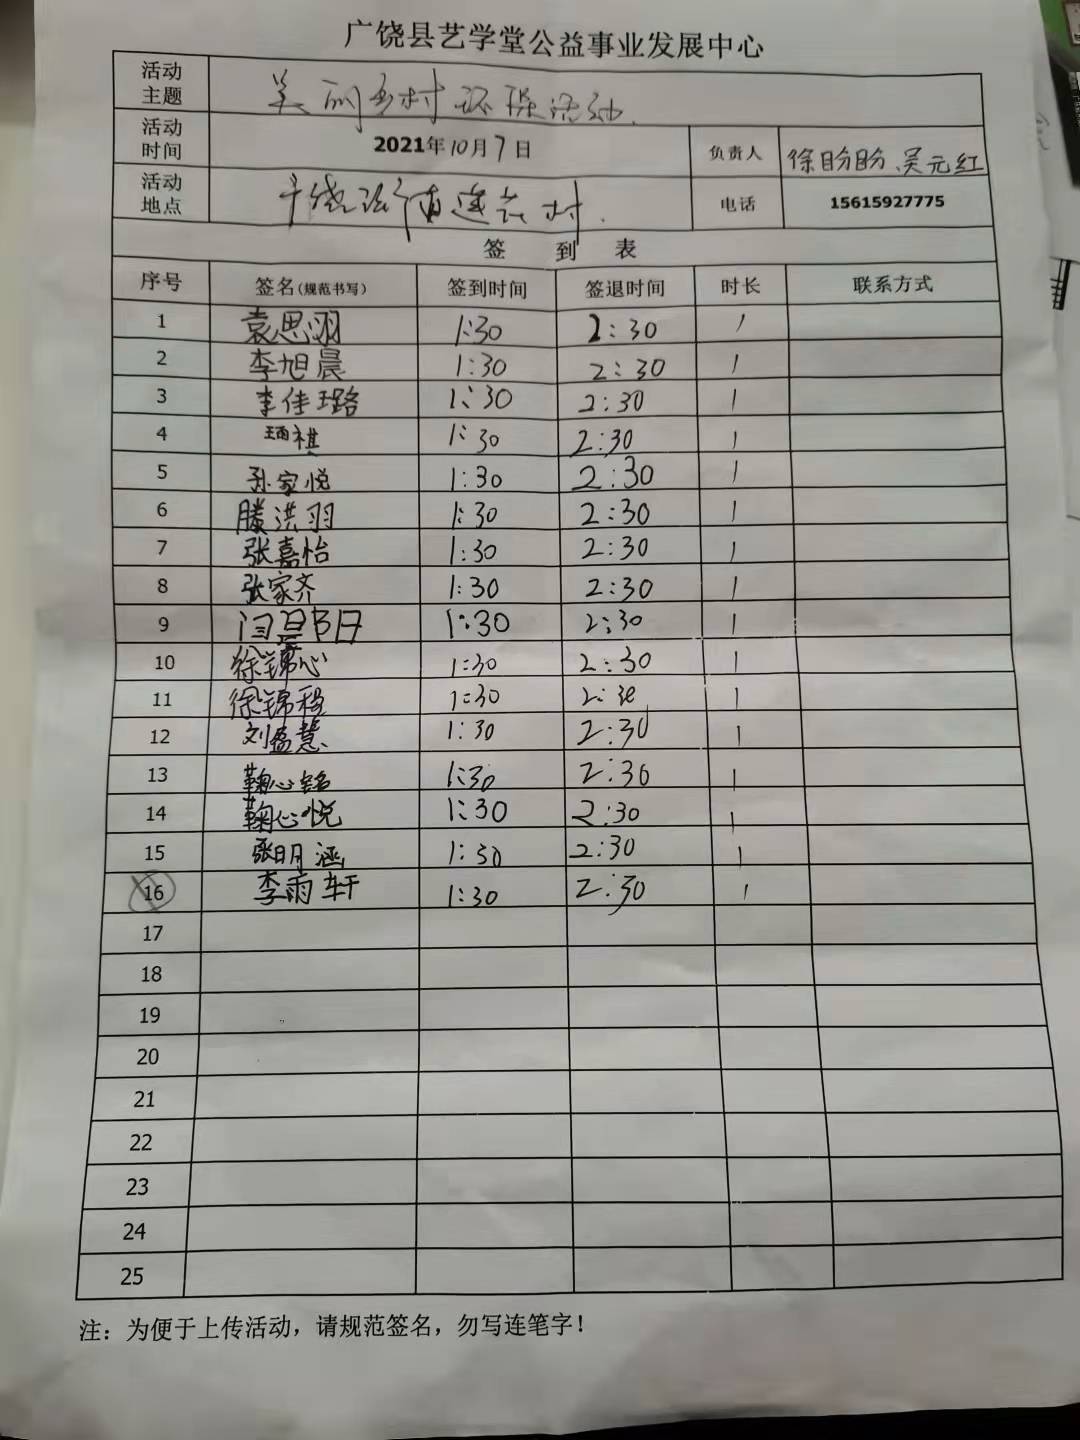 广饶县艺学堂公益事业发展中心
活动主题 美丽乡村环保活动.
活动时间 2021年10月7日 负责人 徐盼盼、吴元红
活动地点 村. 电话 15615927775
签 到 表
序号 签名(规范书写) 签到时间 签退时间 时长 联系方式
1 袁思羽 1:30 2:30 1
2 李旭晨 1:30 2:30 1
3 李佳璐 1:30 2:30 1
4 1:30 2:30 1
5 孙家悦 1:30 2:30 1
6 滕洪羽 1:30 2:30 1
7 张嘉怡 1:30 2:30 1
8 张家齐 1:30 2:30 1
9 1:30 2:30 1
10 徐锦心 1:30 2:30 1
11 徐锦程 1:30 2:30 1
12 刘孟慧 1:30 2:30 1
13 鞠心铭 1:30 2:30 1
14 鞠心悦 1:30 2:30 1
15 张明涵 1:30 2:30 1
16 李雨轩 1:30 2:30 1
17
18
19
20
21
22
23
24
25
注：为便于上传活动，请规范签名，勿写连笔字！